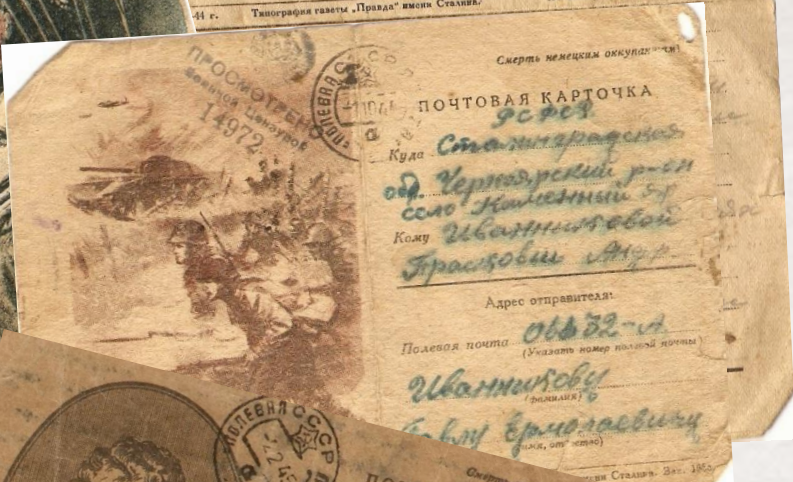 44 г. Типография газеты „Правда“ имени Сталина.
Смерть немецким оккупантам!
ПРОСМОТРЕНО
Военной Цензурой
14972
ПОЛЕВАЯ СССР
ПОЧТОВАЯ КАРТОЧКА
РСФСР
Куда Сталинградская
обл. Черноярский р-он
село Каменный Яр
Кому Иванниковой
Прасковии Андр
Адрес отправителя:
Полевая почта 32-А
(Указать номер полевой почты)
Иванникову
(фамилия)
Павлу Ермолаевичу
(имя, отчество)
ПОЛЕВАЯ СССР
Смерть
имени Сталина. Зак.